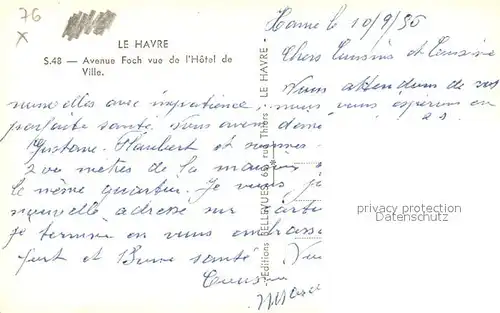 76
x
LE HAVRE
S.48 — Avenue Foch vue de l'Hôtel de
Ville.
Editions BELLEVUES, 66, rue Thiers - LE HAVRE -
10/9/56
Chers Cousins et Cousine
Nous attendons de vos
nouvelles avec impatience, nous vous espérons en
parfaite santé. Nous avons
Gustave Flaubert et sommes
200 mètres de la maison
le même quartier. Je vous
nouvelle adresse sur carte
je termine en vous embrasse
fort et Bonne santé
Cousin
privacy protection
Datenschutz